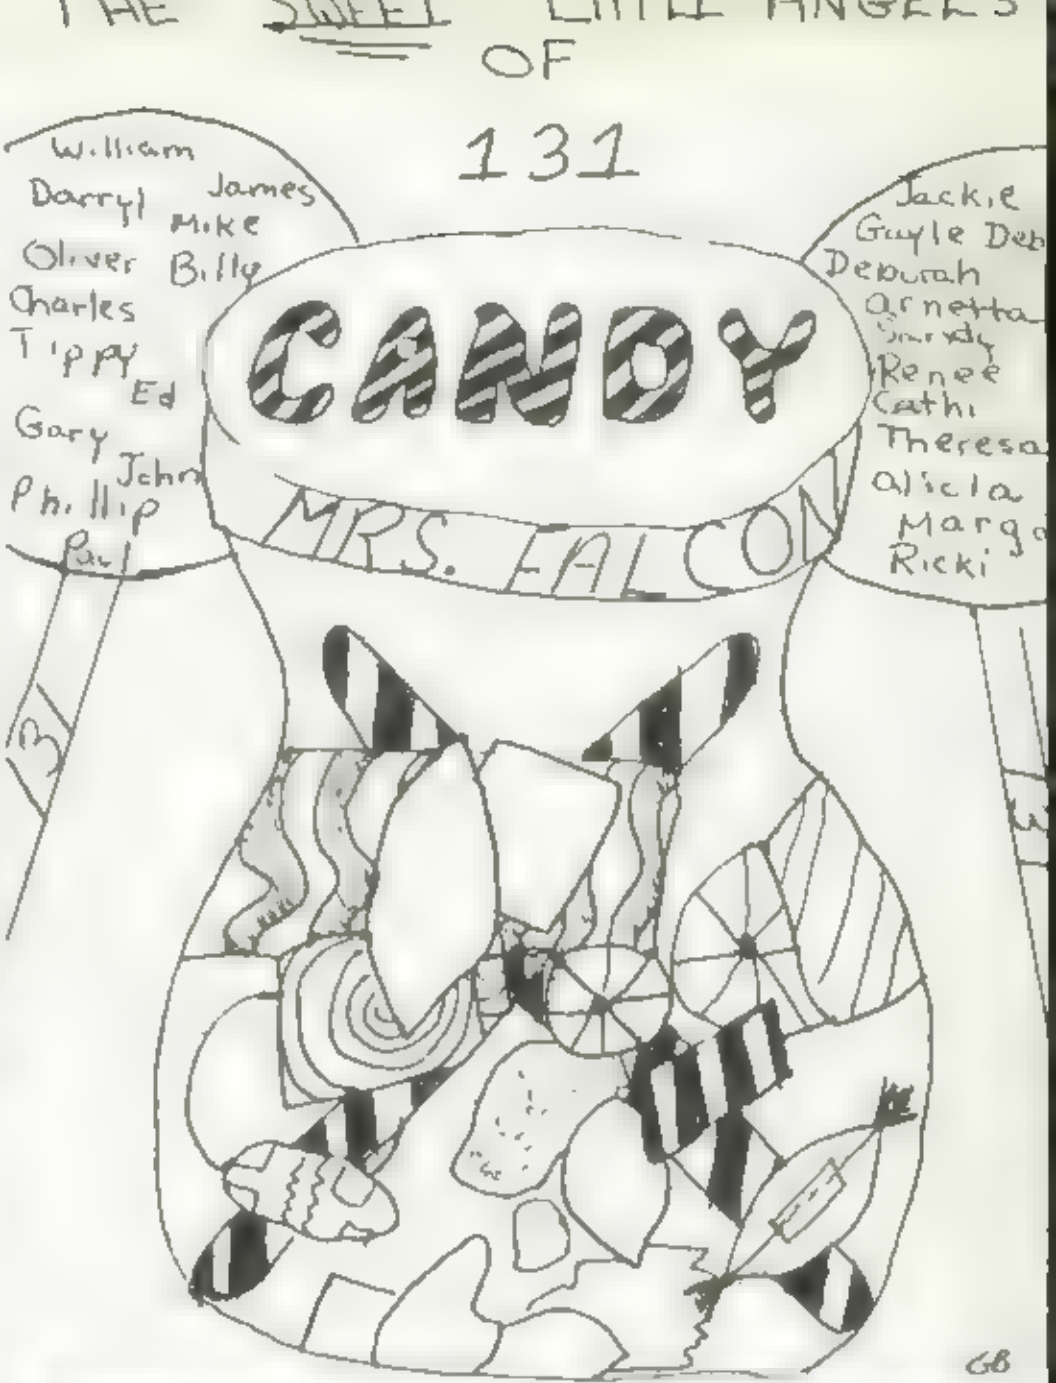 THE SWEET LITTLE ANGELS
OF
131
William
Darryl James
Mike
Oliver Billy
Charles
Tippy
Ed
Gary
John
Phillip
Paul
131
CANDY
MRS. FALCON
Jackie
Gayle Deb
Deborah
Arnetta
Sandy
Renee
Cathi
Theresa
Alicia
Marga
Ricki
13
GB